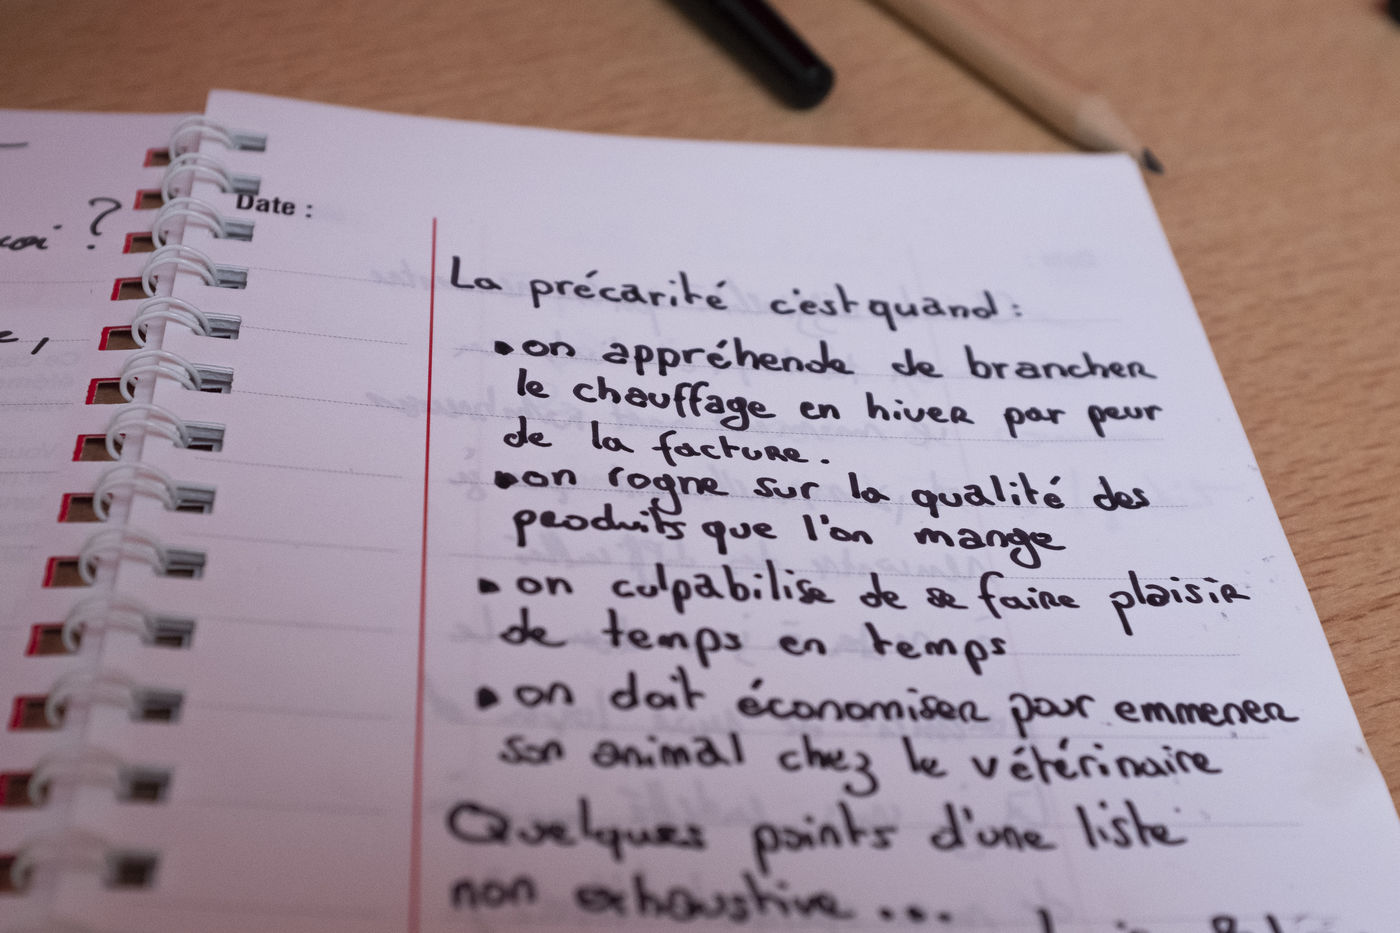 Date :
?
La précarité c'est quand :
• on appréhende de brancher
le chauffage en hiver par peur
de la facture.
• on rogne sur la qualité des
produits que l'on mange
• on culpabilise de se faire plaisir
de temps en temps
• on doit économiser pour emmener
son animal chez le vétérinaire
Quelques points d'une liste
non exhaustive...